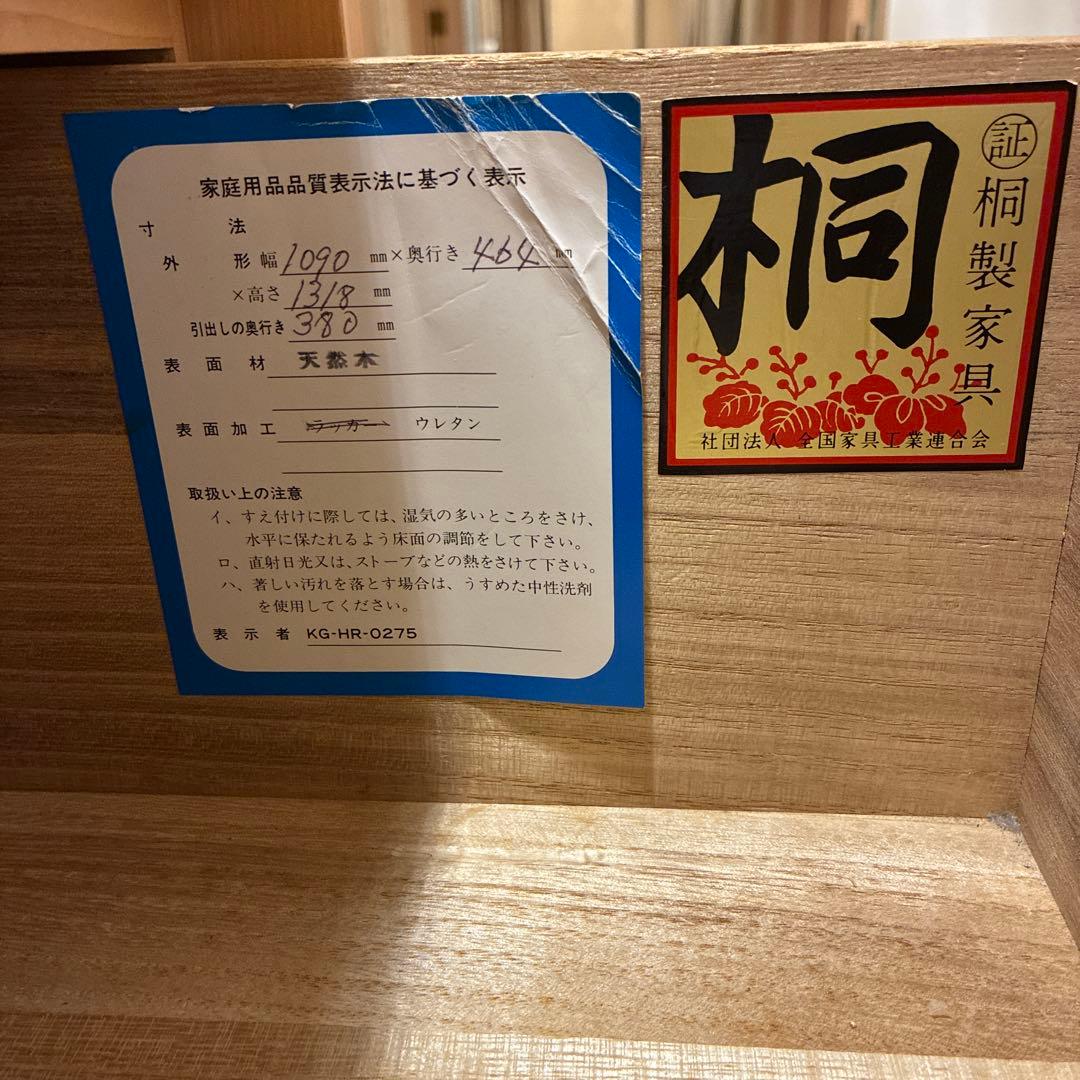 家庭用品品質表示法に基づく表示
寸法
外形 幅 1090 mm × 奥行き 464 mm
×高さ 1318 mm
引出しの奥行き 380 mm
表面材 天然木
表面加工 ラッカー ウレタン
取扱い上の注意
イ、すえ付けに際しては、湿気の多いところをさけ、
水平に保たれるよう床面の調節をして下さい。
ロ、直射日光又は、ストーブなどの熱をさけて下さい。
ハ、著しい汚れを落とす場合は、うすめた中性洗剤
を使用してください。
表示者 KG-HR-0275
桐
証 桐製家具
社団法人 全国家具工業連合会